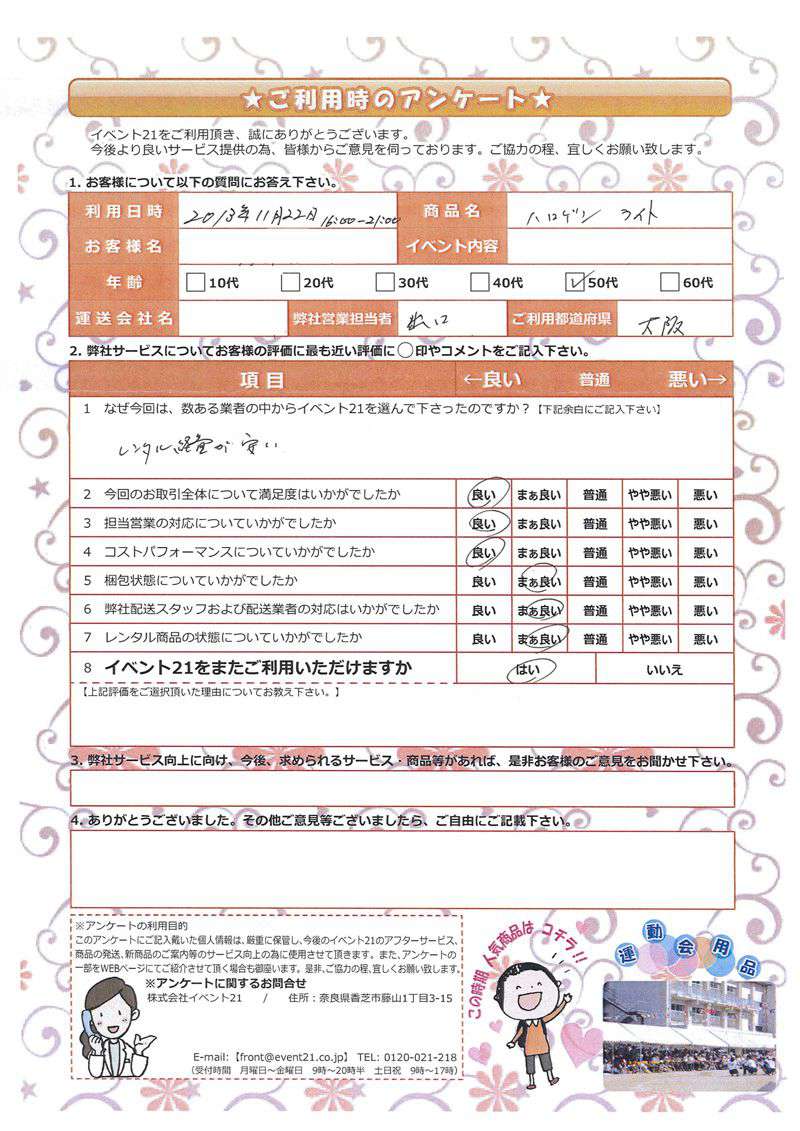 ★ご利用時のアンケート★
イベント21をご利用頂き、誠にありがとうございます。
今後より良いサービス提供の為、皆様からご意見を伺っております。ご協力の程、宜しくお願い致します。
1. お客様について以下の質問にお答え下さい。
利用日時 2013年11月22日 16:00-21:00 商品名 ハロゲン ライト
お客様名 イベント内容
年齢 10代 20代 30代 40代 50代 60代
運送会社名 弊社営業担当者 ご利用都道府県 大阪
2. 弊社サービスについてお客様の評価に最も近い評価に○印やコメントをご記入下さい。
項目 ←良い 普通 悪い→
1 なぜ今回は、数ある業者の中からイベント21を選んで下さったのですか?【下記余白にご記入下さい】
レンタル経費が安い
2 今回のお取引全体について満足度はいかがでしたか 良い まぁ良い 普通 やや悪い 悪い
3 担当営業の対応についていかがでしたか 良い まぁ良い 普通 やや悪い 悪い
4 コストパフォーマンスについていかがでしたか 良い まぁ良い 普通 やや悪い 悪い
5 梱包状態についていかがでしたか 良い まぁ良い 普通 やや悪い 悪い
6 弊社配送スタッフおよび配送業者の対応はいかがでしたか 良い まぁ良い 普通 やや悪い 悪い
7 レンタル商品の状態についていかがでしたか 良い まぁ良い 普通 やや悪い 悪い
8 イベント21をまたご利用いただけますか はい いいえ
【上記評価をご選択頂いた理由についてお教え下さい。】
3. 弊社サービス向上に向け、今後、求められるサービス・商品等があれば、是非お客様のご意見をお聞かせ下さい。
4. ありがとうございました。その他ご意見等ございましたら、ご自由にご記載下さい。
※アンケートの利用目的
このアンケートにご記入戴いた個人情報は、厳重に保管し、今後のイベント21のアフターサービス、
商品の発送、新商品のご案内等のサービス向上の為に使用させて頂きます。また、アンケートの
一部をWEBページにてご紹介させて頂く場合も御座います。是非、ご協力の程、宜しくお願い致します。
※アンケートに関するお問合せ
株式会社イベント21 / 住所:奈良県香芝市藤山1丁目3-15
E-mail:【front@event21.co.jp】 TEL: 0120-021-218
(受付時間 月曜日~金曜日 9時~20時半 土日祝 9時~17時)
この時期 人気商品は コチラ!!
運動会用品